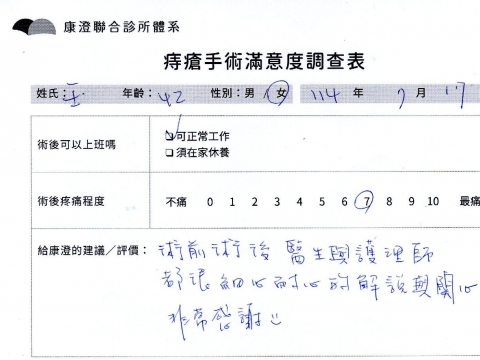 康澄聯合診所體系
痔瘡手術滿意度調查表
姓氏：王 年齡：42 性別：男 女 114 年 7 月 17
術後可以上班嗎 可正常工作
□ 須在家休養
術後疼痛程度 不痛 0 1 2 3 4 5 6 7 8 9 10 最痛
給康澄的建議／評價： 術前術後醫生與護理師
都很細心耐心的解說與關心
非常感謝